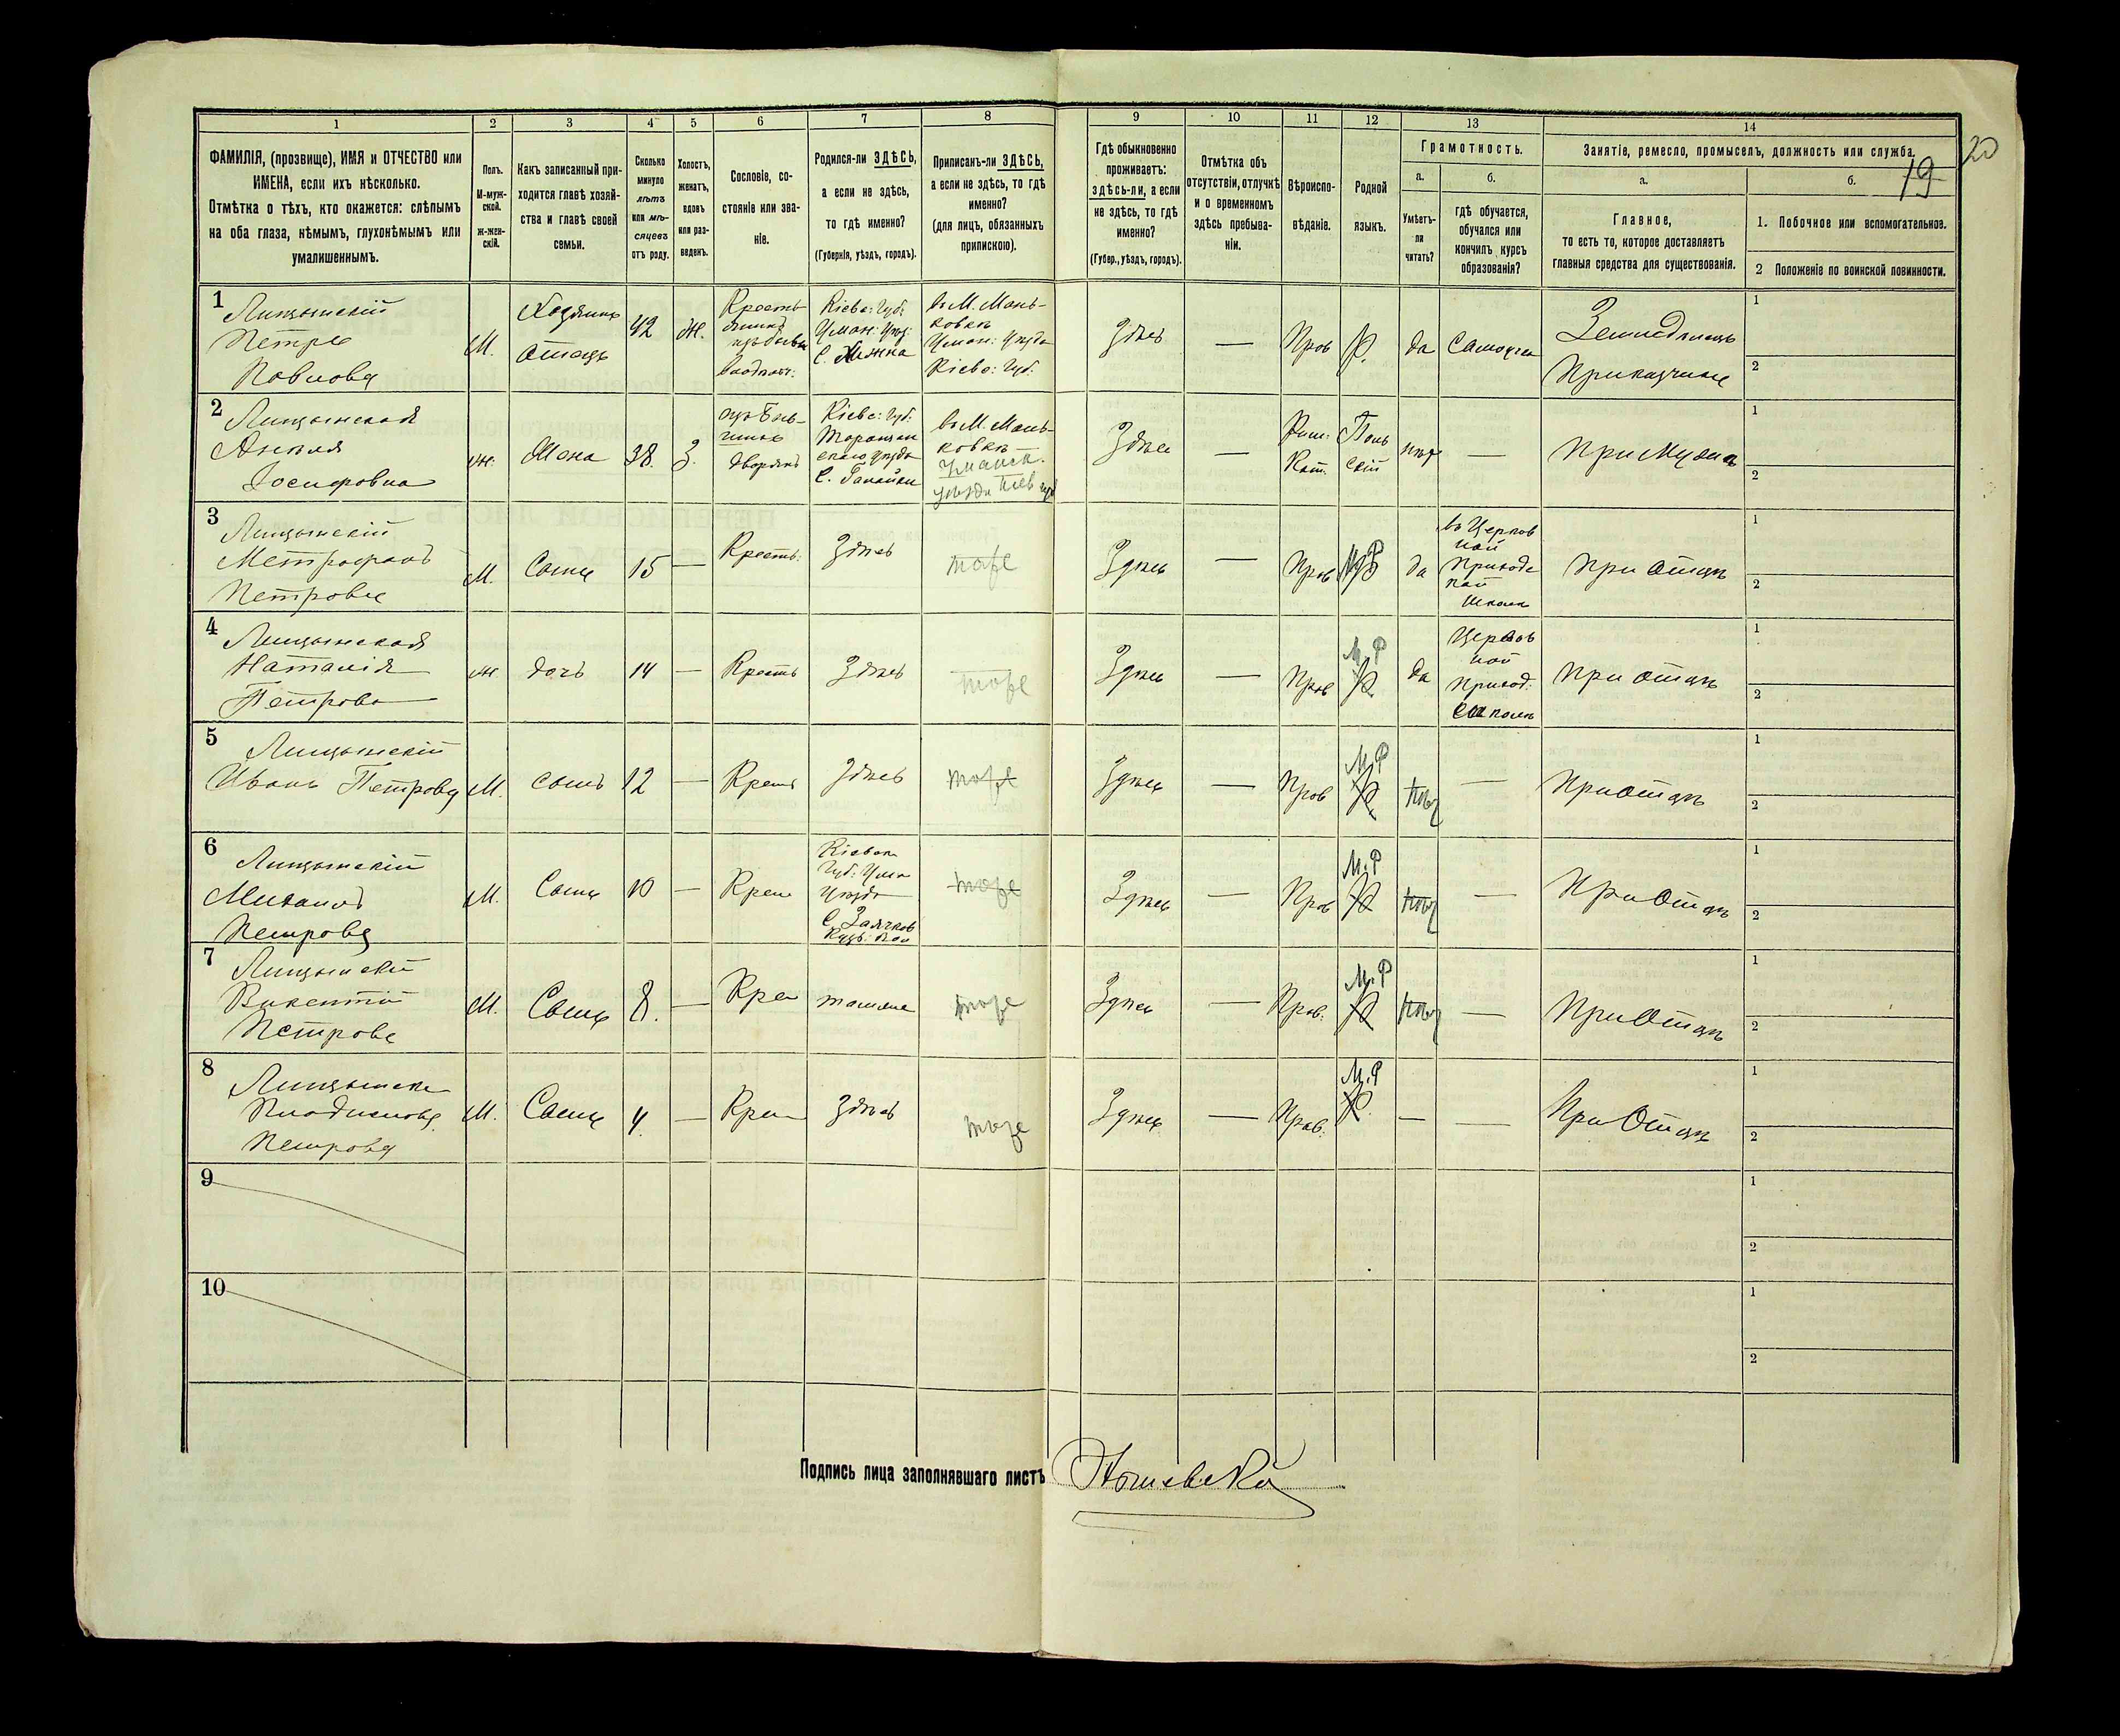 1
2
3
4
5
6
7
8
ФАМИЛІЯ, (прозвище), ИМЯ и ОТЧЕСТВО или
ИМЕНА, если ихъ нѣсколько.
Отмѣтка о тѣхъ, кто окажется: слѣпымъ
на оба глаза, нѣмымъ, глухонѣмымъ или
умалишеннымъ.
Полъ.
М-муж-
ской.
ж-жен-
скій.
Какъ записанный при-
ходится главѣ хозяй-
ства и главѣ своей
семьи.
Сколько
минуло
лѣтъ
или мѣ-
сяцевъ
отъ роду.
Холостъ,
женатъ,
вдовъ
или раз-
веденъ.
Сословіе, со-
стояніе или зва-
ніе.
Родился-ли ЗДѢСЬ,
а если не здѣсь,
то гдѣ именно?
(Губернія, уѣздъ, городъ).
Приписанъ-ли ЗДѢСЬ,
а если не здѣсь, то гдѣ
именно?
(для лицъ, обязанныхъ
припискою).
9
10
11
12
13
14
Гдѣ обыкновенно
проживаетъ:
здѣсь-ли, а если
не здѣсь, то гдѣ
именно?
(Губер., уѣздъ, городъ).
Отмѣтка объ
отсутствіи, отлучкѣ
и о временномъ
здѣсь пребыва-
ніи.
Вѣроиспо-
вѣданіе.
Родной
языкъ.
Грамотность.
а.
Умѣетъ-
ли
читать?
б.
гдѣ обучается,
обучался или
кончилъ курсъ
образованія?
Занятіе, ремесло, промыселъ, должность или служба.
19
20
а.
Главное,
то есть то, которое доставляетъ
главныя средства для существованія.
б.
1. Побочное или вспомогательное.
2 Положеніе по воинской повинности.
1
Петръ
М.
Хозяинъ
отецъ
42
Ж.
Кіевс: Губ:
Уман: Уѣз:
въ М. Мань-
ковкѣ
Уман: Уѣзда
Кіевс: Губ.
Здѣсь
—
Пров
Р.
да
Земледѣлецъ
1
2
2
Іосифовна
ж.
Жена
38.
З.
дворянъ
Кіевс: Губ.
въ М. Мань-
ковкѣ
Уманск.
уѣзда Кіев губ
Здѣсь
—
Рим:
Кат.
Поль
скій
нѣт
—
При мужѣ
1
2
3
Петровъ
М.
Сынъ
15
—
Кресть:
Здѣсь
тоже
Здѣсь
—
Пров
М.Р
да
въ Церков
ной
Приход
ской
школѣ
При отцѣ
1
2
4
Наталія
Петрова
ж
дочь
14
—
Кресть
Здѣсь
тоже
Здѣсь
—
Пров
М.Р
Р.
да
Церков
ной
Приход:
школѣ
При отцѣ
1
2
5
Иванъ Петровъ
М.
сынъ
12
—
Крест
Здѣсь
тоже
Здѣсь
—
Пров
М.Р
Р.
нѣт
—
При отцѣ
1
2
6
Михаилъ
Петровъ
М.
Сынъ
10
—
Крес
тоже
Здѣсь
—
Пров
М.Р
Р
нѣт
—
При отцѣ
1
2
7
Викентій
Петровъ
М.
Сынъ
8.
—
Кре
тоже
Здѣсь
—
Пров.
М.Р
Р
нѣт
—
При отцѣ
1
2
8
Петровъ
М.
Сынъ
4.
—
Крес
Здѣсь
тоже
Здѣсь
—
Прав.
М.Р
Р.
—
—
При отцѣ
1
2
9
1
2
10
1
2
Подпись лица заполнявшаго листъ